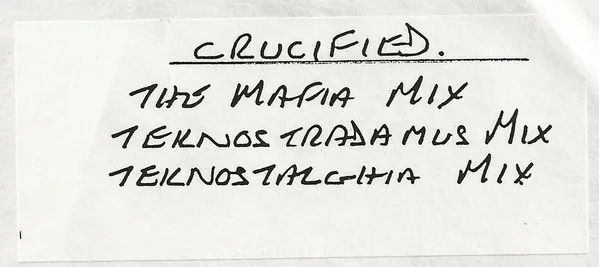 CRUCIFIED.
THE MAFIA MIX
TEKNOSTRADAMUS MIX
TEKNOSTALGHIA MIX